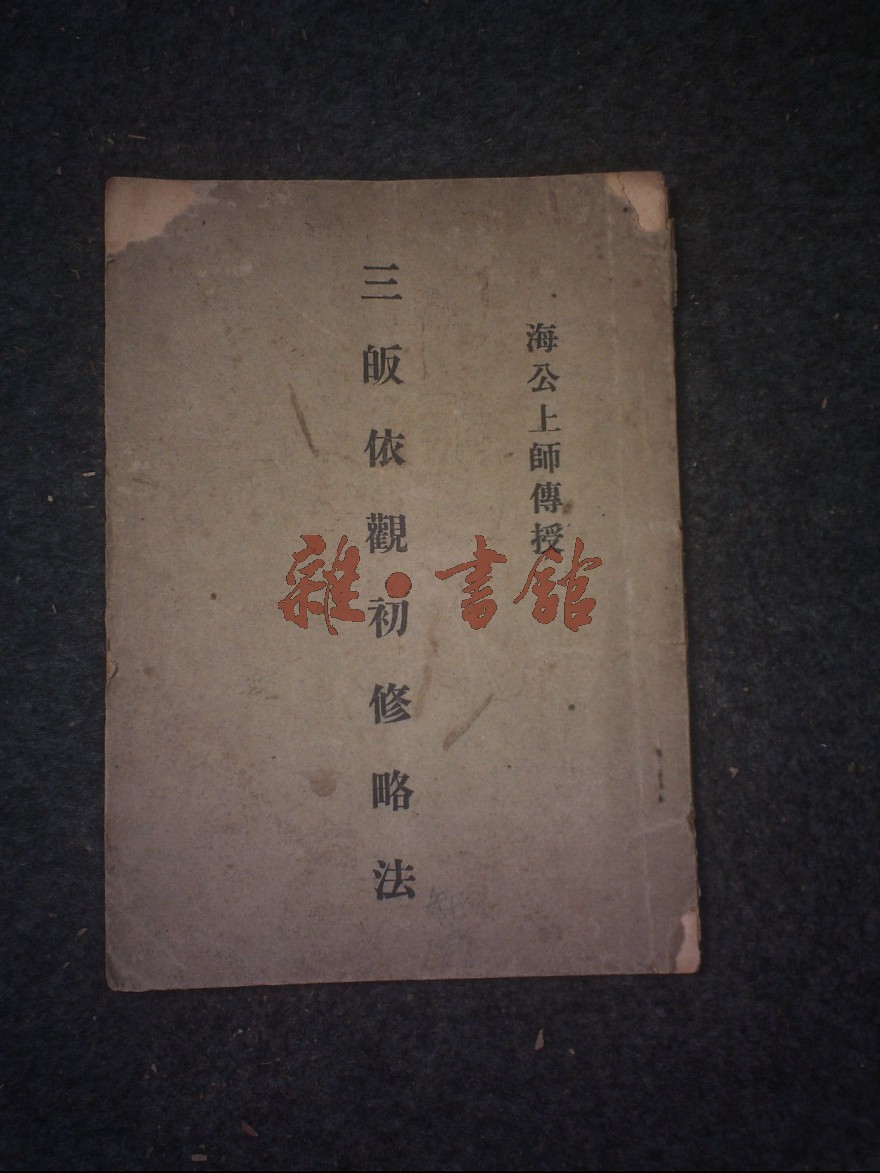 海公上師傳授
三皈依觀初修略法
雜·書館